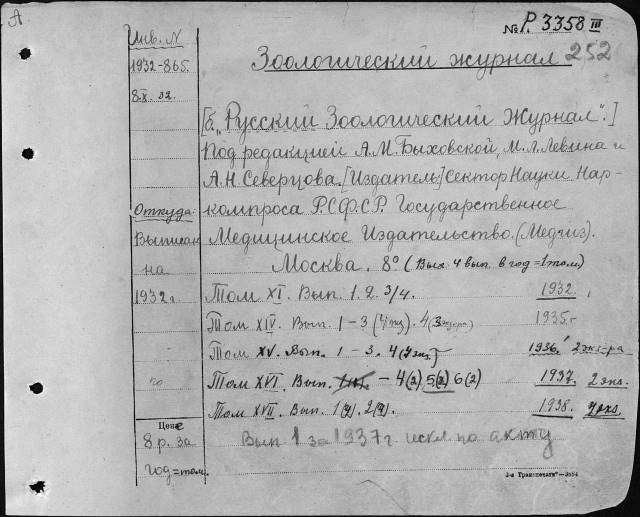 А
№ Р. 3358 III
Инв. N
Зоологический журнал 252
1932-865.
8.X. 32.
[б. „Русский Зоологический Журнал“.]
Под редакцией А.М. Быховской, М.Л. Левина и
А.Н. Северцова. [Издатель:] Сектор Науки Нар-
Откуда:
компроса Р.С.Ф.С.Р. Государственное
Выписан
Медицинское Издательство. (Медгиз).
на
Москва. 8° (Вых. 4 вып. в год = 1 том.)
1932 г.
Том XI. Вып. 1. 2. 3/4. 1932.
Том XIV. Вып. 1-3 4 1935 г.
Том XV. Вып. 1-3. 4 1936 г 2 экз-ра
Том XVI. Вып. - 4(2) 5(2) 6(2) 1937. 2 экз.
Том XVII. Вып. 1 2 1938. экз.
Цена
8 р. за
Вып 1 за 1937 г. искл по акту
год = том.
3-я Транспечати“—3564